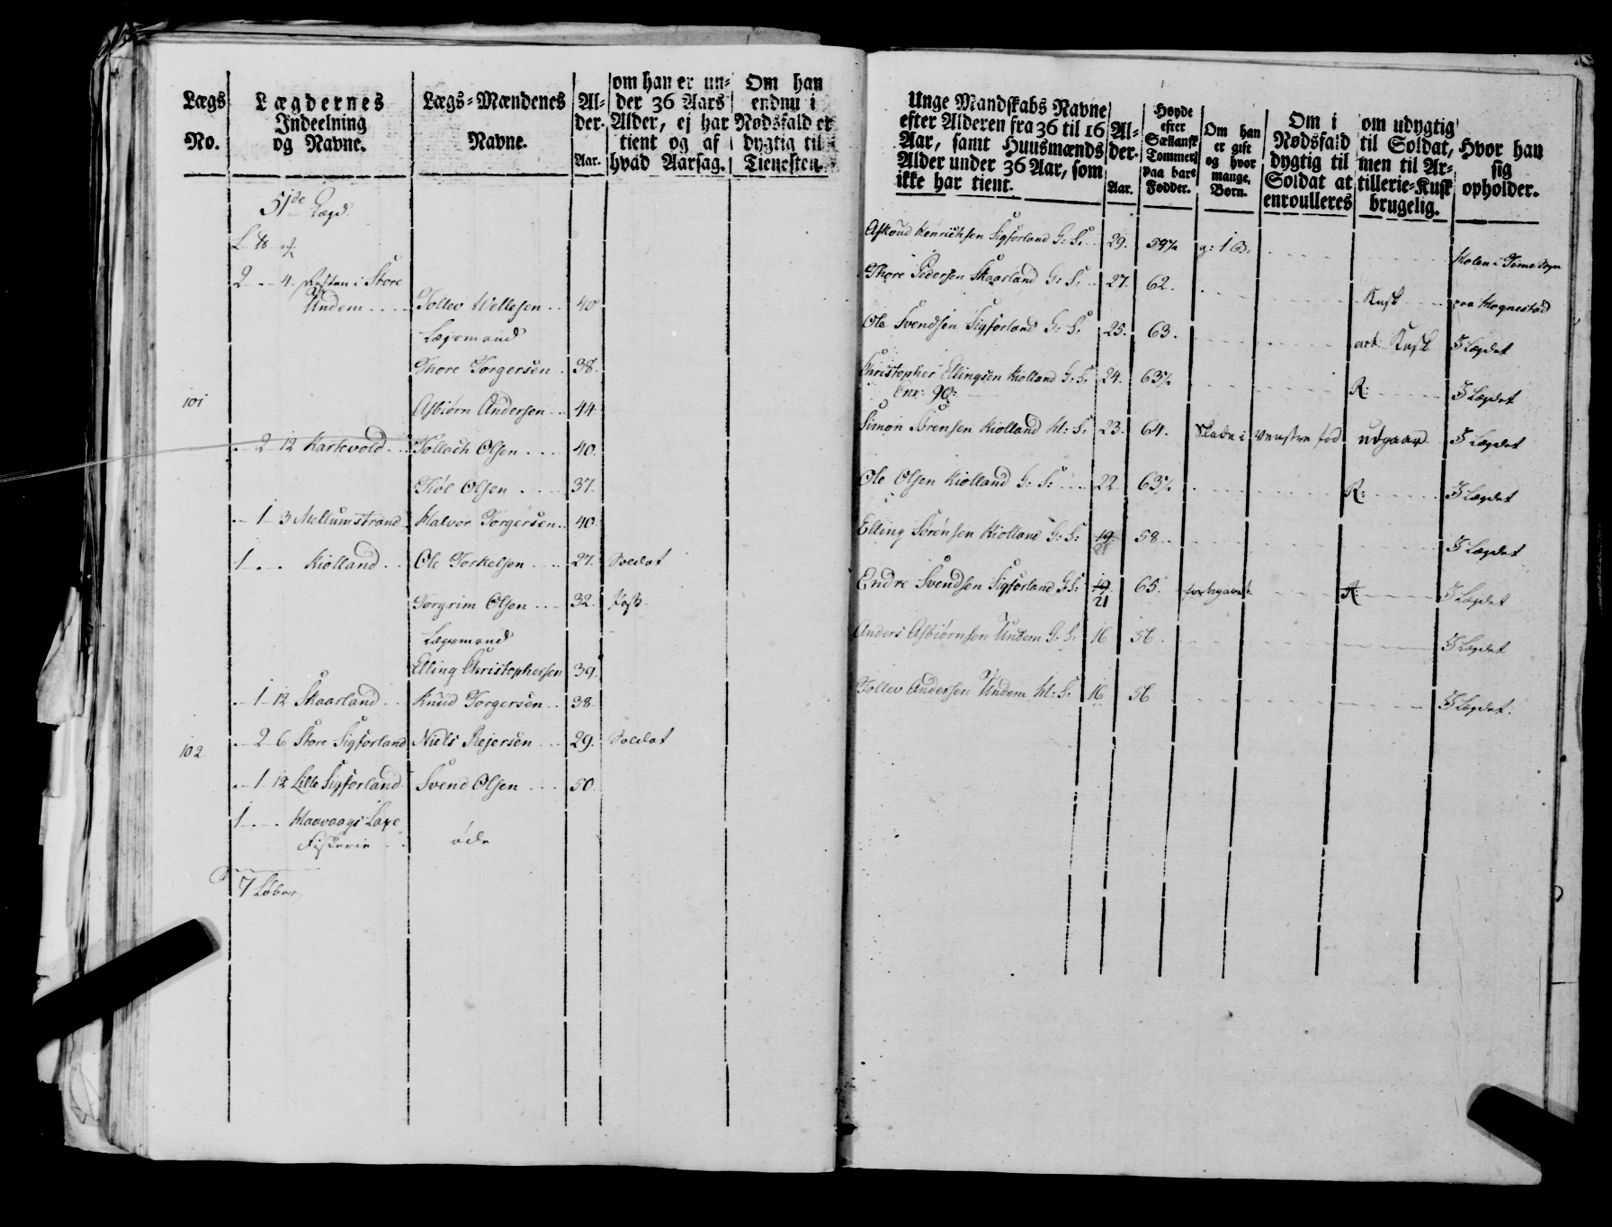 Lægs No.
Lægdernes Indeelning og Navne.
Lægs-Mændenes Navne.
Alder. Aar.
om han er under 36 Aars Alder, ej har tient og af hvad Aarsag.
Om han endnu i Nødsfald er dygtig til Tienesten.
51de Lægd.
2 - 4. Resten i Store
Undem Tollev Vellesen 40
Lægsmand
Thore Torgersen 38.
101 Asbiørn Andersen 44
2 12 Karkevold Tollach Olsen 40
Olsen 37.
1 3 Mellumstrand Halvor Torgersen 40
1 Kiølland Ole Torkelsen 27. Soldat
Torgrim Olsen 32.
Lægsmand
Elling Christophersen 39
1 12 Skaarland Knud Torgersen 38
102 2 6 Store Sigforland Niels Rejersen 29. Soldat
1 12 Lille Sigforland Svend Olsen 50
1 Laxe
Fiskerie øde
7 Løber
Unge Mandskabs Navne efter Alderen fra 36 til 16 Aar, samt Huusmænds Alder under 36 Aar, som ikke har tient.
Alder. Aar.
Høyde efter Sællandsk Tommer paa bare Fødder.
Om han er gift og hvor mange Børn.
Om i Nødsfald dygtig til Soldat at enroulleres
om udygtig til Soldat, men til Artillerie-Kusk brugelig.
Hvor han sig opholder.
Henrichsen Sigforland G: S: 29. 59½ g: 1 B.
Thore Pedersen Skaarland G: S: 27. 62. Kusk paa Hognestad
Ole Svendsen Sigforland G: S: 25. 63. art: Kusk I Lægdet
Christopher Ellingsen Kiølland G: S: 24. 63½ R: I Lægdet
Enr: 90:
Simon Sørensen Kiølland H: S: 23. 64. Skade i venstre fod udgaar I Lægdet
Ole Olsen Kiølland G: S: 22 63½ R: I Lægdet
Elling Sørensen Kiølland G: S: 19 58 I Lægdet
Endre Svendsen Sigforland G: S: 19 21 65. R: I Lægdet
Anders Asbiørnsen Undem G: S: 16 56. I Lægdet
Tollev Andersen Undem H: S: 16 56 I Lægdet.